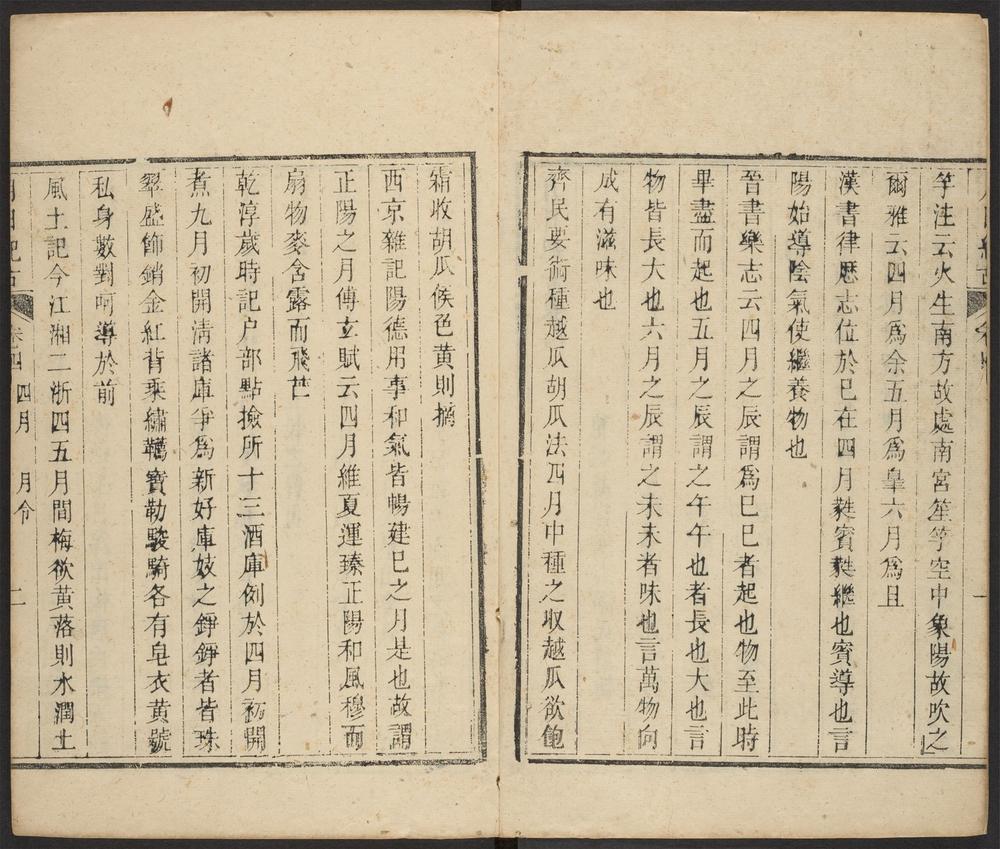 竽注云火生南方故處南宮笙竽空中象陽故吹之
爾雅云四月爲余五月爲皐六月爲且
漢書律歷志位於巳在四月蕤賓蕤繼也賓導也言
陽始導陰氣使繼養物也
晉書樂志云四月之辰謂爲巳巳者起也物至此時
畢盡而起也五月之辰謂之午午也者長也大也言
物皆長大也六月之辰謂之未未者味也言萬物向
成有滋味也
齊民要術種越瓜胡瓜法四月中種之收越瓜欲飽
霜收胡瓜候色黃則摘
西京雜記陽德用事和氣皆暢建巳之月是也故謂
正陽之月傅玄賦云四月維夏運臻正陽和風穆而
扇物麥含露而飛芒
乾淳歲時記户部點撿所十三酒庫例於四月初開
煮九月初開淸諸庫爭爲新好庫妓之錚錚者皆珠
翠盛飾銷金紅背乘繡韉寶勒駿騎各有皂衣黃號
私身數對呵導於前
風土記今江湘二浙四五月間梅欲黃落則水潤土
卷四 四月 月令 二